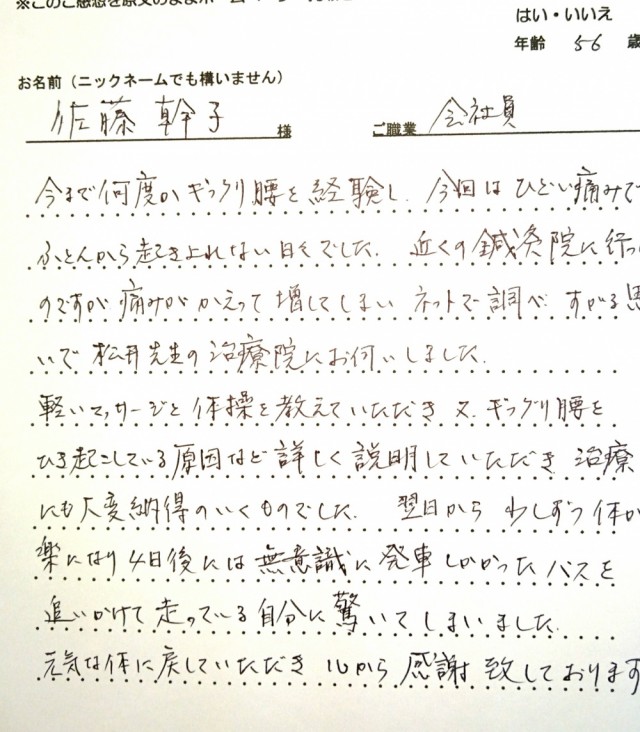 ※このご感想を原文のまま
はい・いいえ
年齢 56 歳
お名前（ニックネームでも構いません）
佐藤 幹子 様 ご職業 会社員
今まで何度かギックリ腰を経験し、今回はひどい痛みで
ふとんから起き上れない日々でした. 近くの鍼灸院に行っ
のですが痛みがかえって増してしまい ネットで調べ すがる思
いで 松井先生の治療院にお伺いしました.
軽いマッサージと体操を教えていただき 又、ギックリ腰を
ひき起こしている原因など詳しく説明していただき 治療
にも大変納得のいくものでした. 翌日から わしずつ体が
楽になり 4日後には無意識に発車しかかったバスを
追いかけて走っている自分に驚いてしまいました.
元気な体に戻していただき 心から感謝致しております